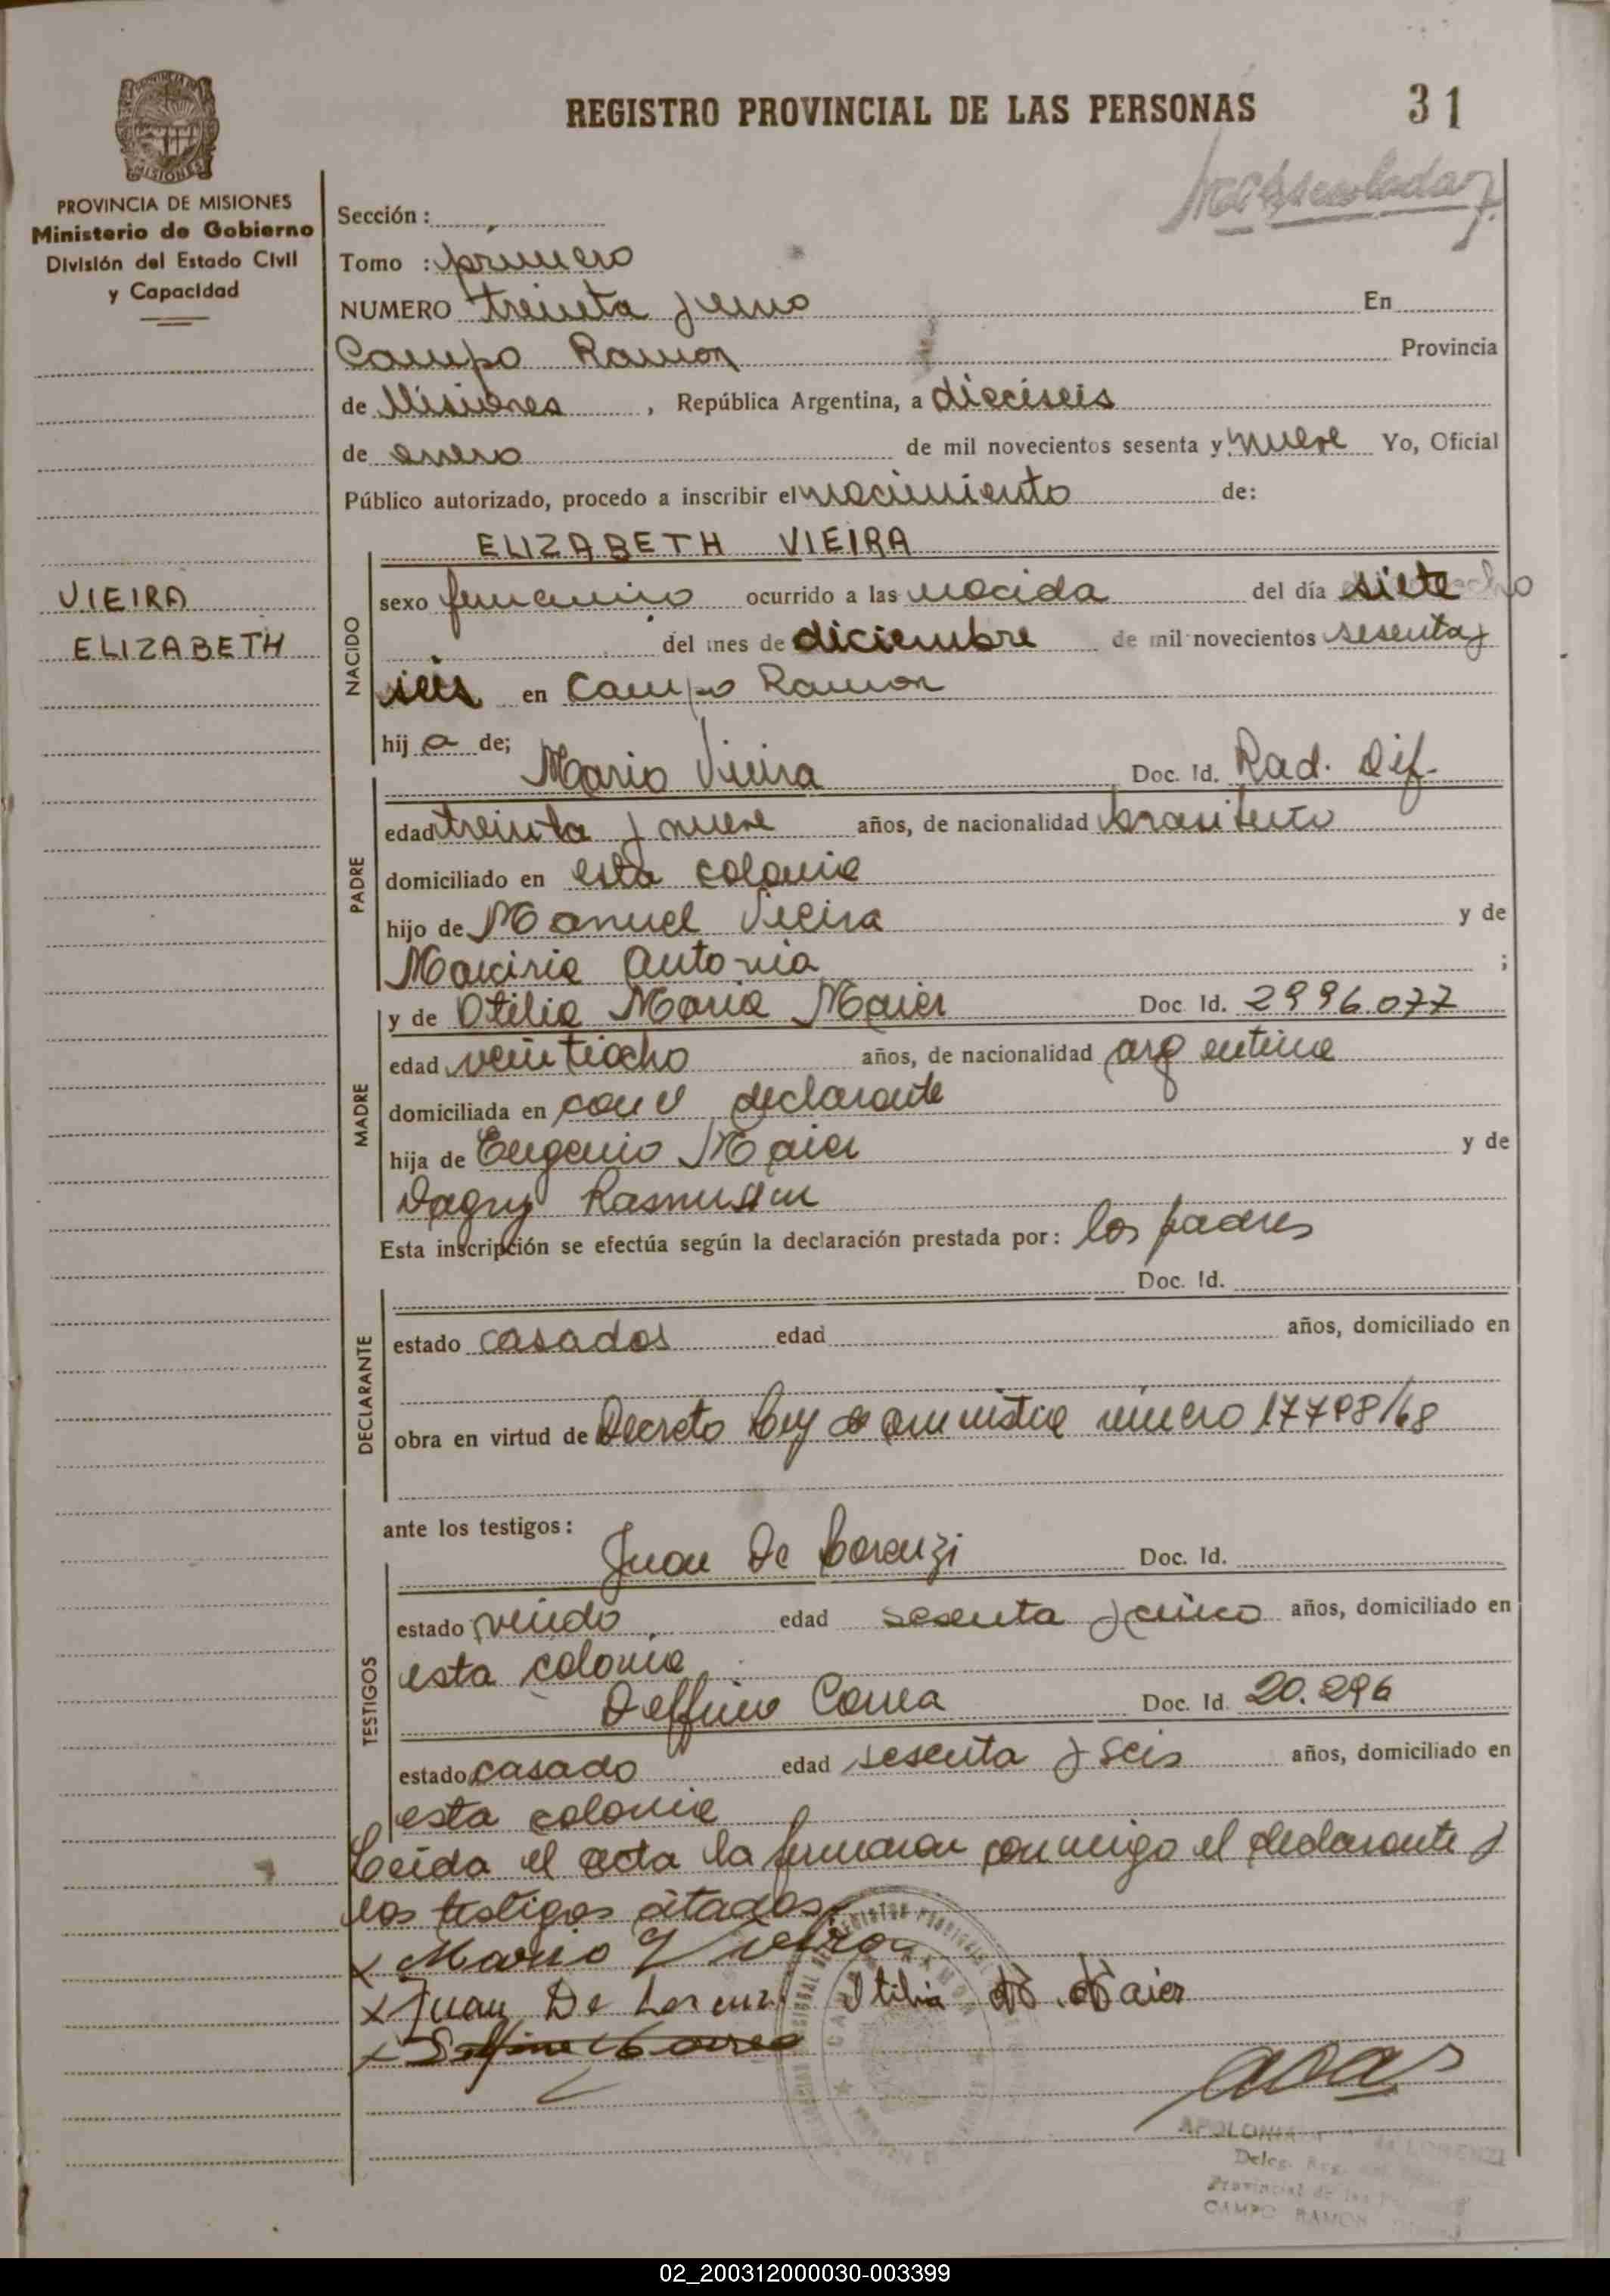 REGISTRO PROVINCIAL DE LAS PERSONAS
31
PROVINCIA DE MISIONES
Ministerio de Gobierno
División del Estado Civil
y Capacidad
MISIONES
VIEIRA
ELIZABETH
Sección :
Tomo : primero
NUMERO treinta y uno En
Campo Ramon Provincia
de Misiones , República Argentina, a dieciseis
de enero de mil novecientos sesenta y nueve Yo, Oficial
Público autorizado, procedo a inscribir el nacimiento de:
ELIZABETH VIEIRA
NACIDO
sexo femenino ocurrido a las nacida del día siete
del mes de diciembre de mil novecientos sesenta y
seis en Campo Ramon
hij a de;
Mario Vieira Doc. Id. Rad. Dif.
PADRE
edad treinta y nueve años, de nacionalidad brasileño
domiciliado en esta colonia
hijo de Manuel Vieira y de
Antonia ;
y de Otilia Maria Maier Doc. Id. 2996.077
MADRE
edad veintiocho años, de nacionalidad argentina
domiciliada en con el declarante
hija de Eugenio Maier y de
Dagny Rasmussen
Esta inscripción se efectúa según la declaración prestada por: los padres
Doc. Id.
DECLARANTE
estado casados edad años, domiciliado en
obra en virtud de Decreto Ley de amnistia número 17798/68
ante los testigos:
Juan De Lorenzi Doc. Id.
TESTIGOS
estado viudo edad sesenta y cinco años, domiciliado en
esta colonia
Delfino Correa Doc. Id. 20.296
estado casado edad sesenta y seis años, domiciliado en
esta colonia
Leida el acta la firmaron conmigo el declarante y
los testigos citados
x Mario Vieira
x Juan De Lorenzi Otilia M. Maier
x Delfino Correa
APOLONIA LORENZI
Deleg.
Provincial de las
CAMPO RAMON
02_200312000030-003399